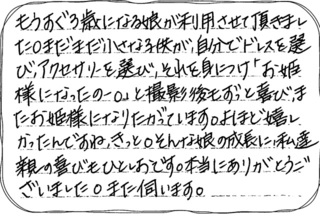 もうすぐ3歳になる娘が利用させて頂きまし
た。まだまだ小さな子供が、自分でドレスを選
び、アクセサリーを選び、それを身につけ「お姫
様になったの-。」と撮影後もずっと喜び、ま
たお姫様になりたがっています。よほど嬉し
かったんですね、きっと。そんな娘の成長に、私達
親の喜びもひとしおです。本当にありがとうご
ざいました。また伺います。